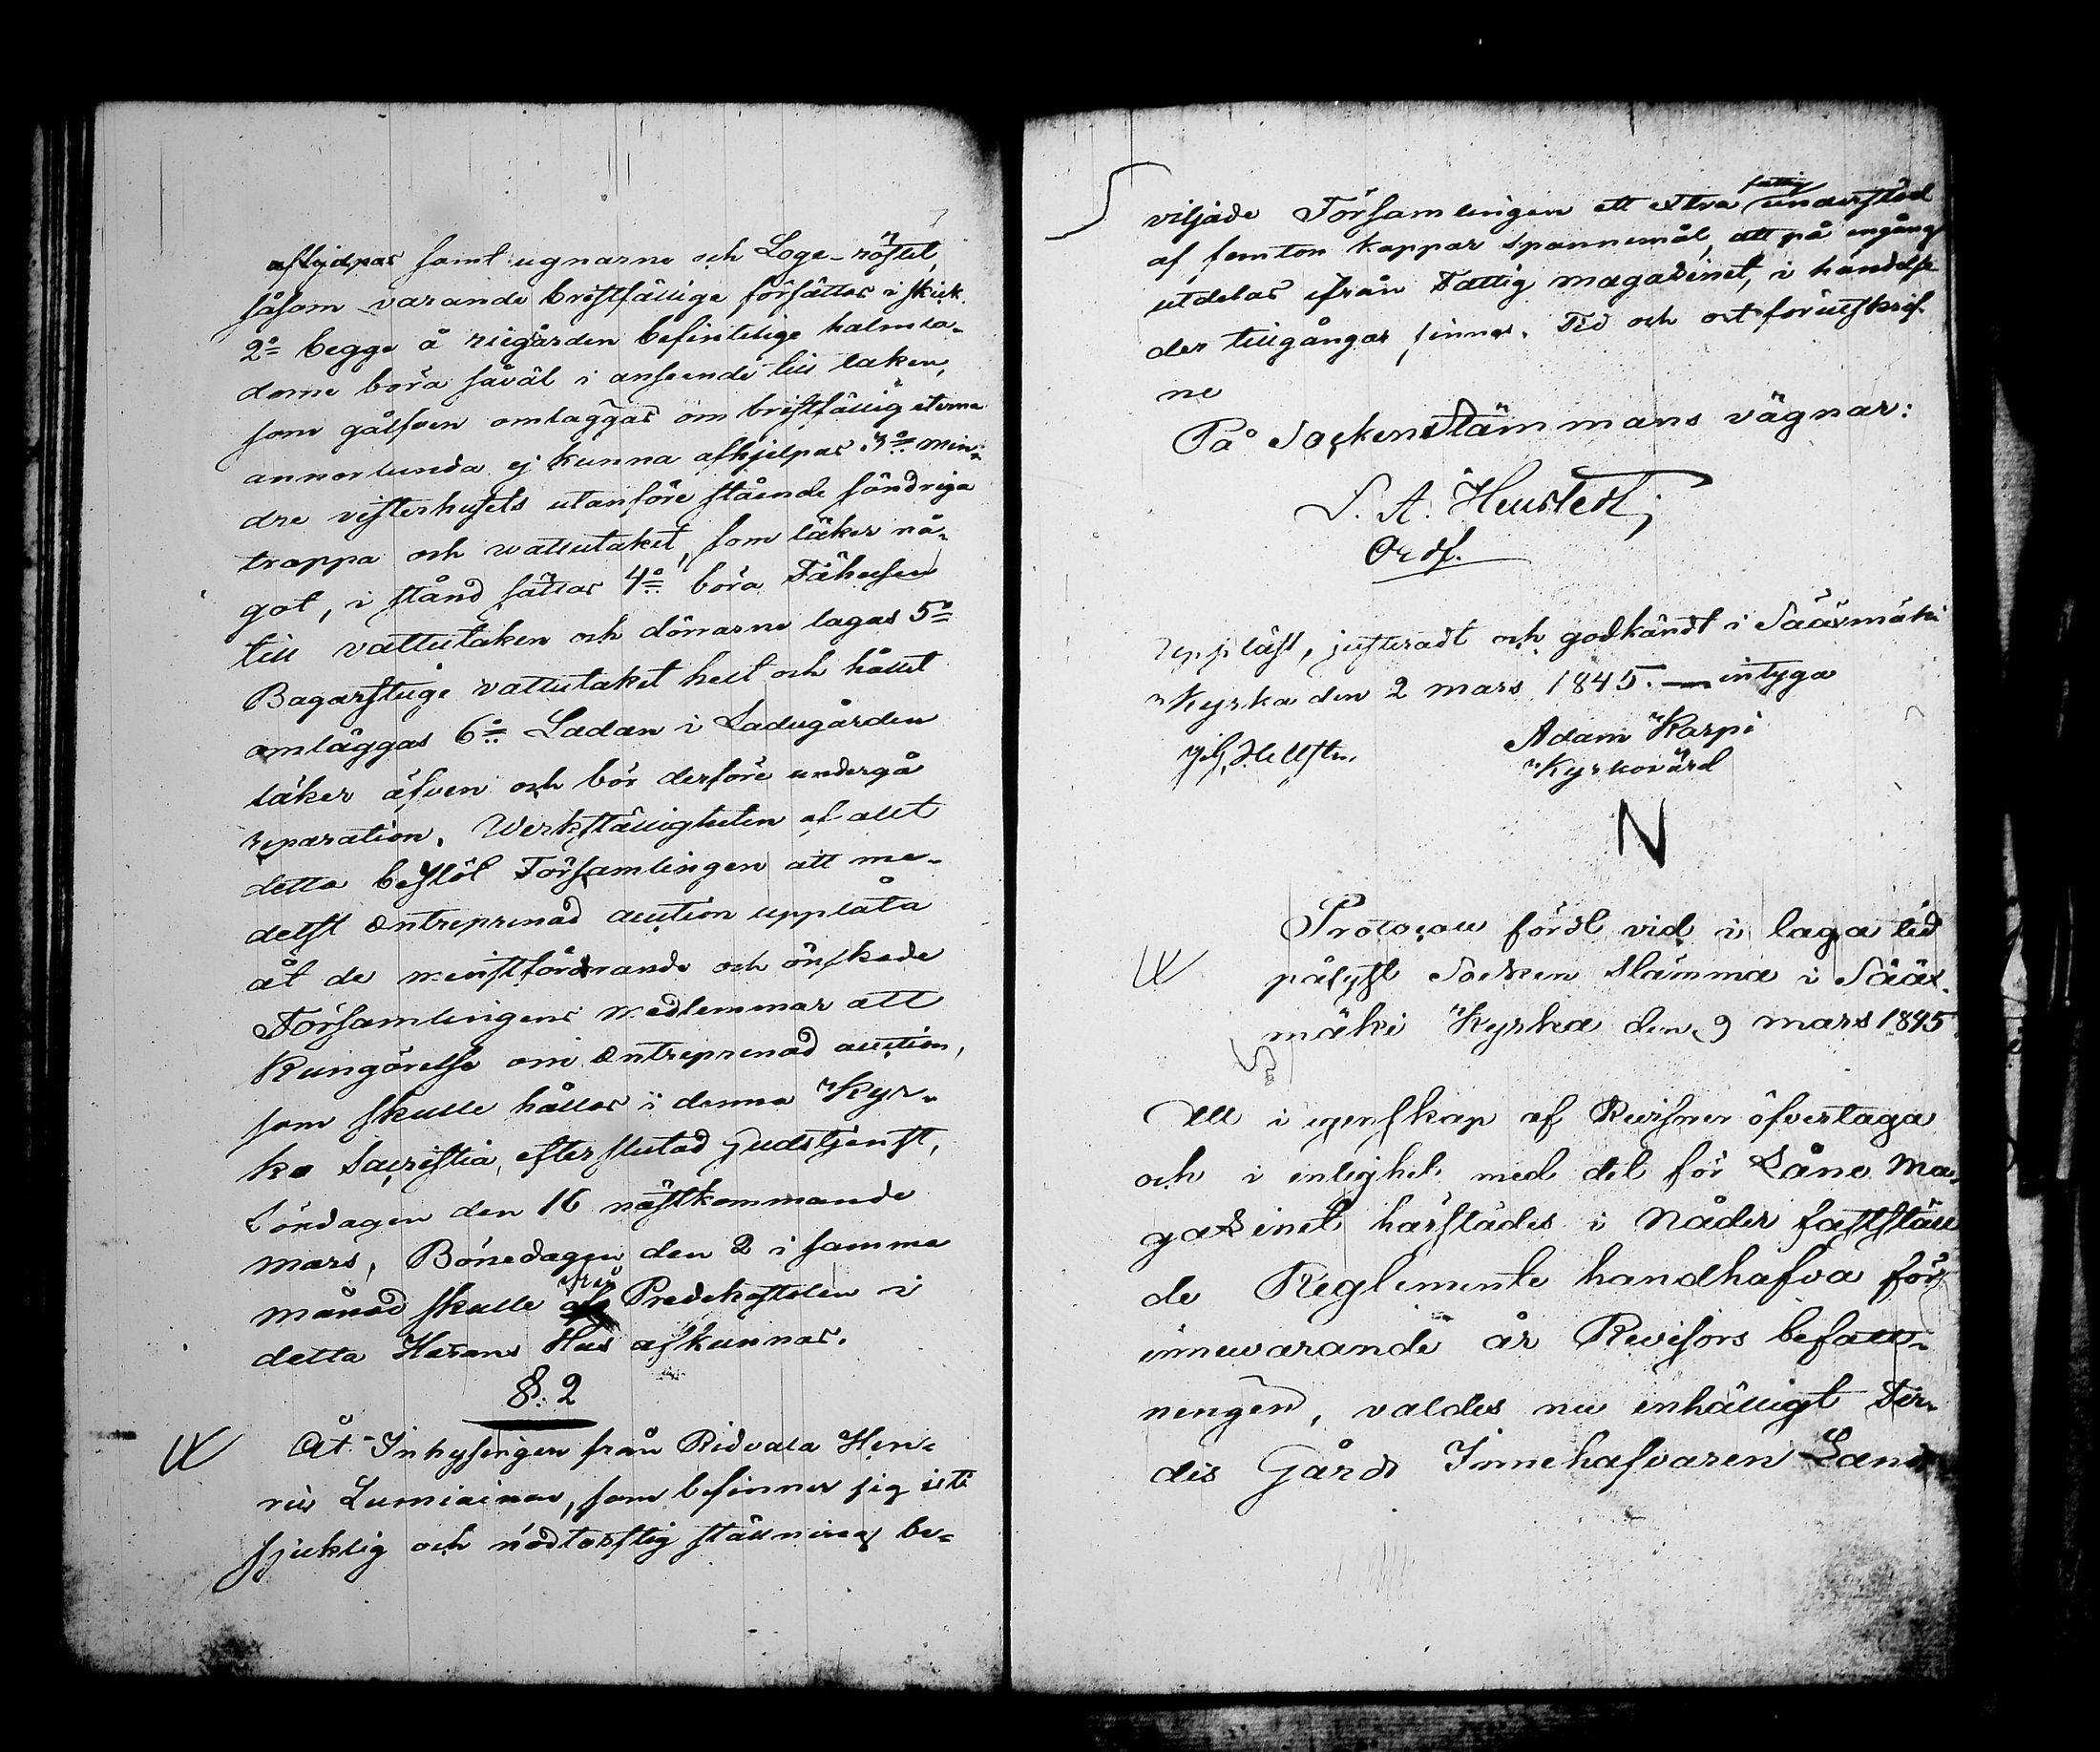 afhjelpas samt ugnarne och Loge-röstet,
såsom varande bristfällige försättas i skick.
2:o begge å riegården befintelige halmla-
dorne böra såväl i anseende till taken,
som gålfven omläggas om bristfälligheterna
annorlunda ej kunna afhjelpas. 3:o min-
dre visterhusets utanföre stående söndriga
trappa och vattutaket, som läker nå-
got, i stånd sättas 4:o böra Fähusen
till vattutaken och dörrarne lagas 5:o
Bagarstuge vattutaket helt och hållet
omläggas 6:o Ladan i Ladugården
läker äfven och bör derföre undergå
reparation. Werkställigheten af allt
detta beslöt Församlingen att me-
delst Entreprenad auction upplåta
åt de minstfördrande och önskade
Församlingens medlemmar att
Kungörelse om Entreprenad auction,
som skulle hållas i denna Kyr-
ka Sacristia, efter slutad Gudstjenst,
Söndagen den 16 nästkommande
mars, Bönedagen den 2 i samma
månad skulle från Predikostolen i
detta Herrans Hus afkunnas.
§. 2
Åt Inhysingen från Ridvala Hen-
ric Lumiainen, som befinner sig uti
sjuklig och nödtorftig ställning be-
viljade Församlingen ett extra fattig understöd
af femton kappar spannemål, att på engång
utdelas ifrån Fattig magasinet, i händelse
der tillgångar finnas. Tid och ort förutskrif-
ne
På Sockenstämmans vägnar:
Ordf.
Uppläst, justeradt och godkändt i Sääxmäki
Kyrka den 2 mars 1845. — intyga
Adam Karpi
Kyrkovärd
N
Protocoll fördt vid i laga tid
pålyst Socken stämma i Sääx-
mäki Kyrka den 9 mars 1845
Att i egenskap af Revisor öfvertaga
och i enlighet med det för Låne Ma-
gasinet härstädes i Nåder fastställ
de Reglemente handhafva för
innevarande år Revisors befatt-
ningen, valdes nu enhälligt Ter-
dis Gårds Innehafvaren Land